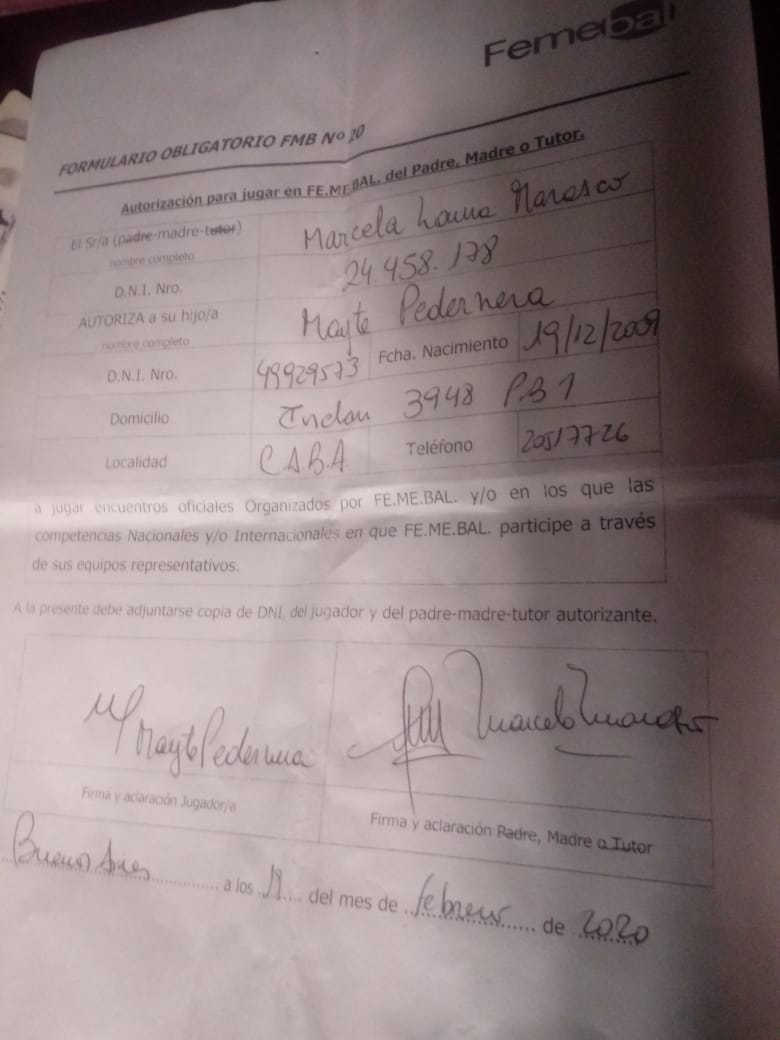 Femebal
FORMULARIO OBLIGATORIO FMB Nº 10
Autorización para jugar en FE.ME.BAL. del Padre, Madre o Tutor.
El Sr/a (padre-madre-tutor)
nombre completo
Marcela Marasco
D.N.I. Nro. 24.458.178
AUTORIZA a su hijo/a
nombre completo
Mayte Pedernera
D.N.I. Nro. 49929573 Fcha. Nacimiento 19/12/2009
Domicilio 3948 PB 1
Localidad C.A.B.A. Teléfono 20517726
a jugar encuentros oficiales Organizados por FE.ME.BAL. y/o en los que las
competencias Nacionales y/o Internacionales en que FE.ME.BAL. participe a través
de sus equipos representativos.
A la presente debe adjuntarse copia de DNI, del jugador y del padre-madre-tutor autorizante.
Mayte Pedernera
Firma y aclaración Jugador/a
Firma y aclaración Padre, Madre o Tutor
Buenos Aires a los 19 del mes de febrero de 2020